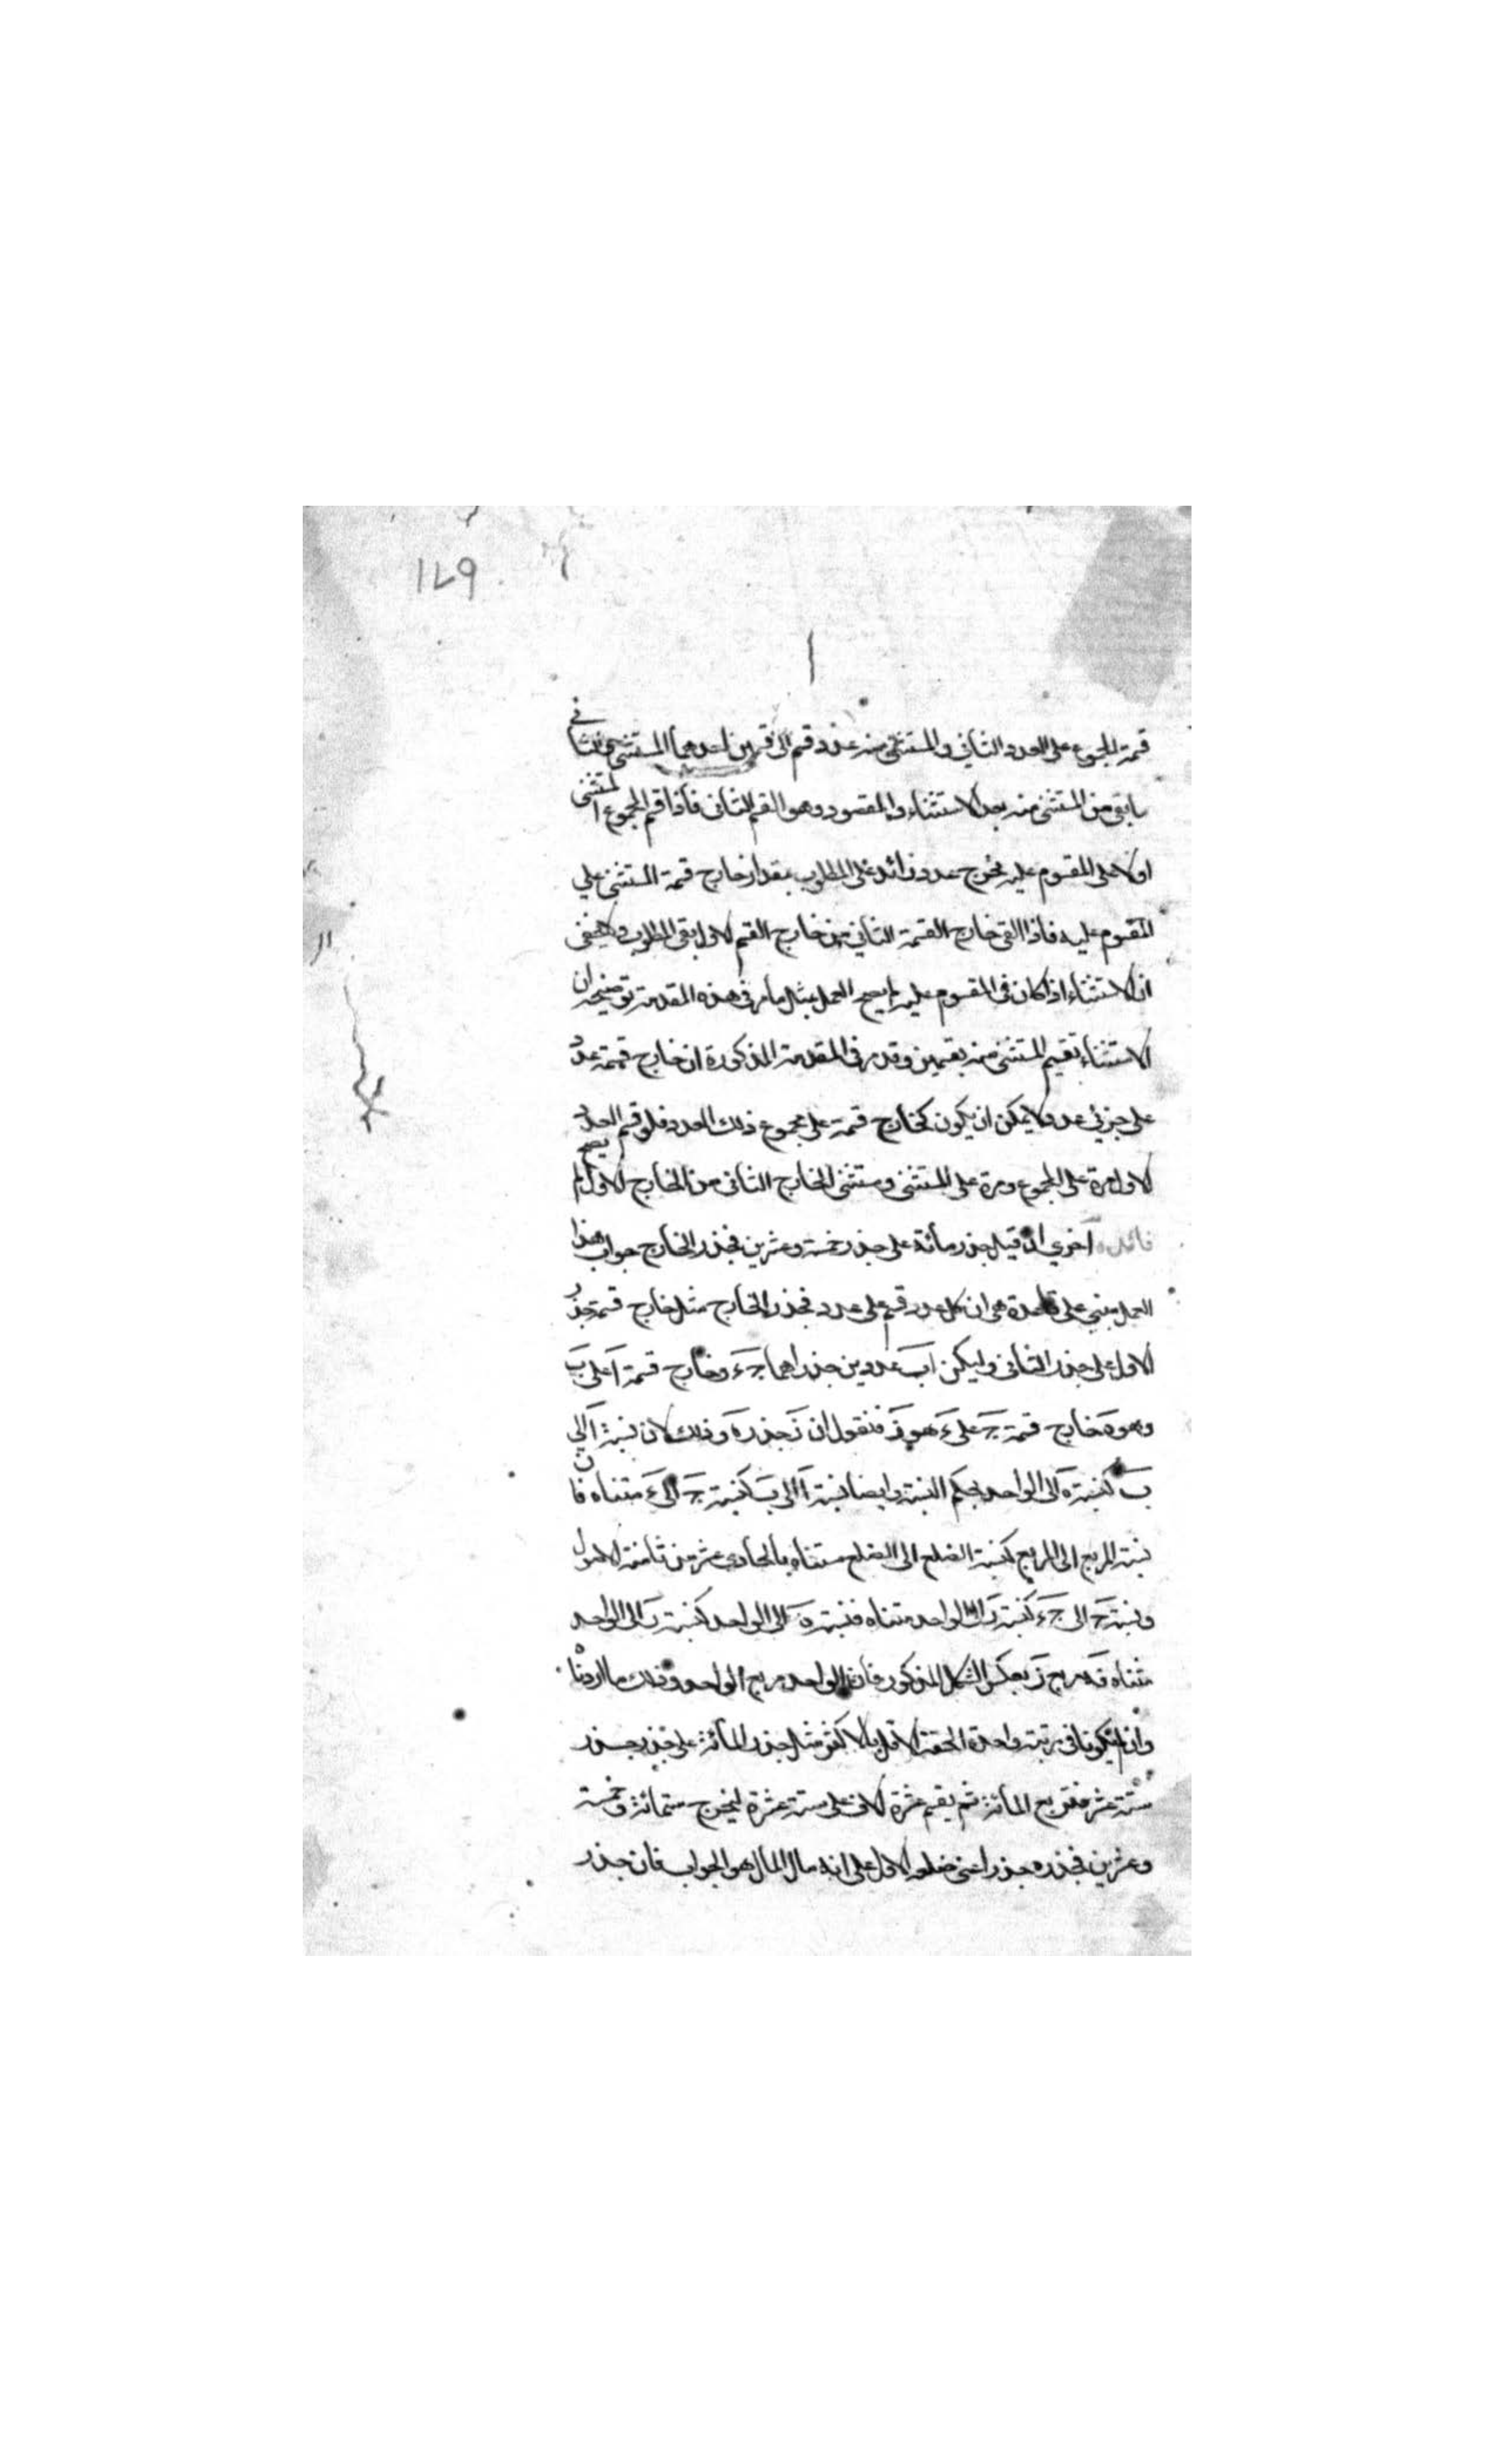 149
قسمة المجموع على العدد الثاني والمستثنى منه عدد قسم الى قسمين احدهما المستثنى والثاني
ما بقى من المستثنى منه بعد الاستثناء والمقصود وهو القسم الثاني فاذا قسم المجموع المستثنى
اولا على المقسوم عليه يخرج عدد زائد على المطلوب بمقدار خارج قسمة المستثنى على
المقسوم عليه فاذا القى خارج القسمة الثاني من خارج القسم الاول بقى المطلوب ولا يخفى
ان الاستثناء اذا كان في المقسوم عليه لم يصح العمل بمثل ما مر في هذه المقدمة توضيحه ان
الاستثناء تقسيم المستثنى منه بقسمين وقد مر في المقدمة المذكورة ان خارج قسمة عدد
على جزئي عدد لا يمكن ان يكون كخارج قسمة على مجموع ذلك العدد فلو قسم العدد
الاول مرة على المجموع ومرة على المستثنى ويستثنى الخارج الثاني من الخارج الاول لم يصح
فائدة اخري اذا قيل جذر مائة على جذر خمسة وعشرين فجذر الخارج جواب هذا
العمل مبني على قاعدة هي ان كل عدد قسم على عدد فجذر الخارج مثل خارج قسمة جذر
الاول على جذر الثاني وليكن آ ب عددين جذراهما ج ء وخارج قسمة آ على ب
وهو ه خارج قسمة ج على ء هو ز فنقول ان ز جذر ه وذلك لان نسبة آ الى
ب كنسبة ه الى الواحد بحكم النسبة وايضا نسبة آ الى ب كنسبة ج الى ء مثناه فان
نسبة المربع الى المربع كنسبة الضلع الى الضلع مثناه بالحادى عشر من ثامنة الاصول
ونسبة ج الى ء كنسبة ز الى الواحد مثناه فنسبة ه الى الواحد كنسبة ز الى الواحد
مثناه فه مربع ز بعكس الشكل المذكور فان الواحد مربع الواحد وذلك ما اردنا
وان لم يكونا في مرتبة واحدة الحقت الاقل بالاكثر مثل جذر المائة على جذر جذر
ستة عشر فنربع المائة ثم يقسم عشرة الاف على ستة عشرة ليخرج ستمائة وخمسة
وعشرين فجذر جذره اعني ضلعه الاول على انه مال المال هو الجواب فان جذر